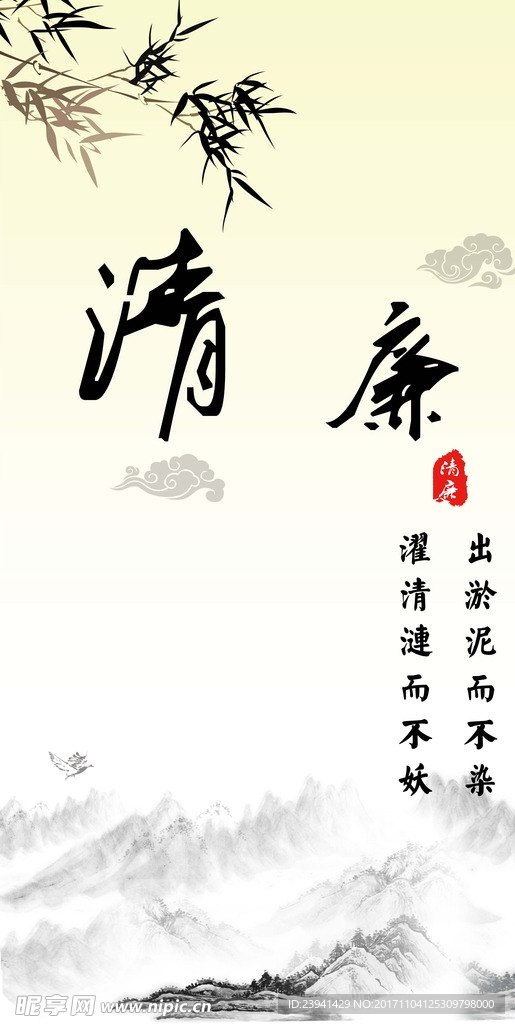 清廉
清廉
出淤泥而不染
濯清涟而不妖
昵享网 www.nipic.cn
ID:23941429 NO:20171104125309798000